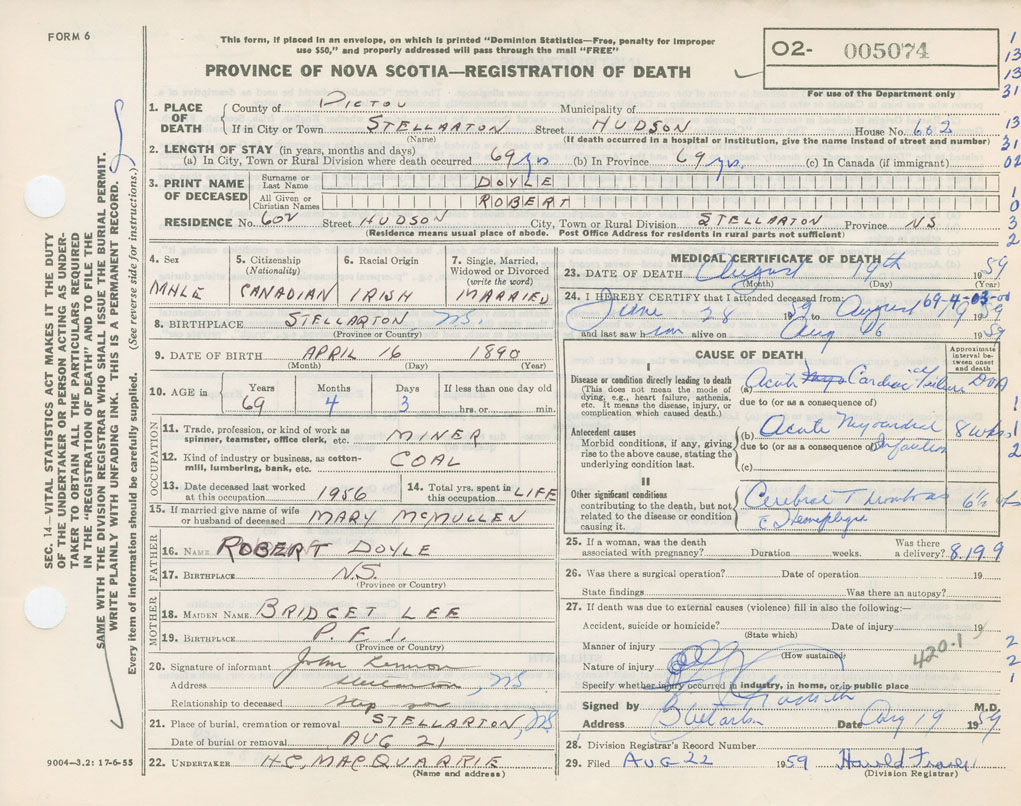 FORM 6
This form, if placed in an envelope, on which is printed "Dominion Statistics—Free, penalty for improper
use $50," and properly addressed will pass through the mail "FREE"
PROVINCE OF NOVA SCOTIA—REGISTRATION OF DEATH
O2- 005074
For use of the Department only
1. PLACE OF DEATH
County of PICTOU Municipality of
If in City or Town STELLARTON Street HUDSON House No. 602
(Name) (If death occurred in a hospital or institution, give the name instead of street and number)
2. LENGTH OF STAY (in years, months and days)
(a) In City, Town or Rural Division where death occurred 69 yrs (b) In Province 69 yrs. (c) In Canada (if immigrant)
3. PRINT NAME OF DECEASED
Surname or Last Name DOYLE
All Given or Christian Names ROBERT
RESIDENCE No. 602 Street HUDSON City, Town or Rural Division STELLARTON Province NS
(Residence means usual place of abode. Post Office Address for residents in rural parts not sufficient)
4. Sex MALE
5. Citizenship (Nationality) CANADIAN
6. Racial Origin IRISH
7. Single, Married, Widowed or Divorced (write the word) MARRIED
8. BIRTHPLACE STELLARTON NS.
(Province or Country)
9. DATE OF BIRTH APRIL 16 1890
(Month) (Day) (Year)
10. AGE in Years 69 Months 4 Days 3 If less than one day old
hrs. or min.
OCCUPATION
11. Trade, profession, or kind of work as spinner, teamster, office clerk, etc. MINER
12. Kind of industry or business, as cotton-mill, lumbering, bank, etc. COAL
13. Date deceased last worked at this occupation 1956
14. Total yrs. spent in this occupation LIFE
15. If married give name of wife or husband of deceased MARY McMULLEN
FATHER
16. NAME ROBERT DOYLE
17. BIRTHPLACE N.S.
(Province or Country)
MOTHER
18. MAIDEN NAME BRIDGET LEE
19. BIRTHPLACE P.E.I.
(Province or Country)
20. Signature of informant John Lennon
Address Stellarton, NS
Relationship to deceased step son
21. Place of burial, cremation or removal STELLARTON, NS
Date of burial or removal AUG 21
22. UNDERTAKER H.C. MACQUARRIE
(Name and address)
MEDICAL CERTIFICATE OF DEATH
23. DATE OF DEATH August 19th 1959
(Month) (Day) (Year)
24. I HEREBY CERTIFY that I attended deceased from:
69-4-03-00
June 28 1959 to August 19 1959
and last saw him alive on Aug 16 1959
CAUSE OF DEATH
Approximate interval between onset and death
I
Disease or condition directly leading to death
(This does not mean the mode of dying, e.g., heart failure, asthenia, etc. It means the disease, injury, or complication which caused death.)
(a) Acute Cardiac Failure DOA
due to (or as a consequence of)
Antecedent causes
Morbid conditions, if any, giving rise to the above, stating the underlying condition last.
(b) Acute Myocardial 8 wks
due to (or as a consequence of) Infarction
(c)
II
Other significant conditions
contributing to the death, but not related to the disease or condition causing it.
Cerebral Thrombosis 6½
c Hemiplegia
25. If a woman, was the death associated with pregnancy? Duration weeks. Was there a delivery? 8.19.9
26. Was there a surgical operation? Date of operation 19
State findings Was there an autopsy?
27. If death was due to external causes (violence) fill in also the following:—
Accident, suicide or homicide? Date of injury 19
(State which)
Manner of injury
(How sustained)
420.1
Nature of injury
Specify whether injury occurred in industry, in home, or in public place
Signed by M.D.
Address Stellarton Date Aug 19 1959
28. Division Registrar's Record Number
29. Filed AUG 22 1959 Harold Fraser
(Division Registrar)
SEC. 14—VITAL STATISTICS ACT MAKES IT THE DUTY
OF THE UNDERTAKER OR PERSON ACTING AS UNDER-
TAKER TO OBTAIN ALL THE PARTICULARS REQUIRED
IN THE "REGISTRATION OF DEATH" AND TO FILE THE
SAME WITH THE DIVISION REGISTRAR WHO SHALL ISSUE THE BURIAL PERMIT.
WRITE PLAINLY WITH UNFADING INK. THIS IS A PERMANENT RECORD.
Every item of information should be carefully supplied. (See reverse side for instructions.)
9004—3.2: 17-6-55
1
13
13
31
13
31
02
1
0
3
2
1
1
2
2
2
1